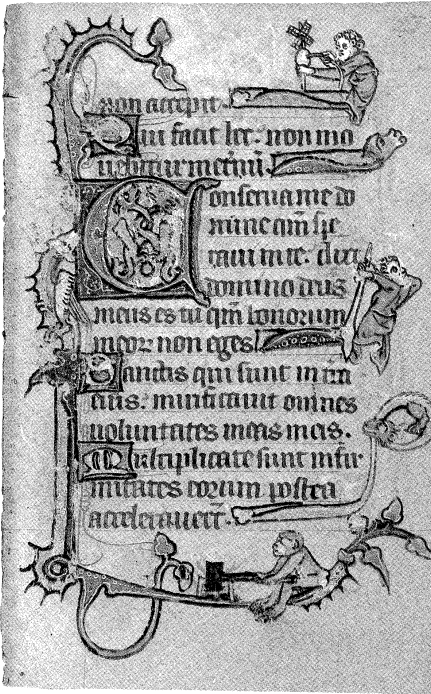 non accepit.
Qui facit hec: non mo
uebitur in et̄nū.
Conserua me do
mine qm̄ spe
raui in te: dixi
domino deus
meus es tu qm̄ bonorum
meoꝝ non eges
Sanctis qui sunt in t̄ra
eius: mirificauit omnes
uoluntates meas in eis.
Multiplicate sunt infir
mitates eorum postea
accelerauer̄t.